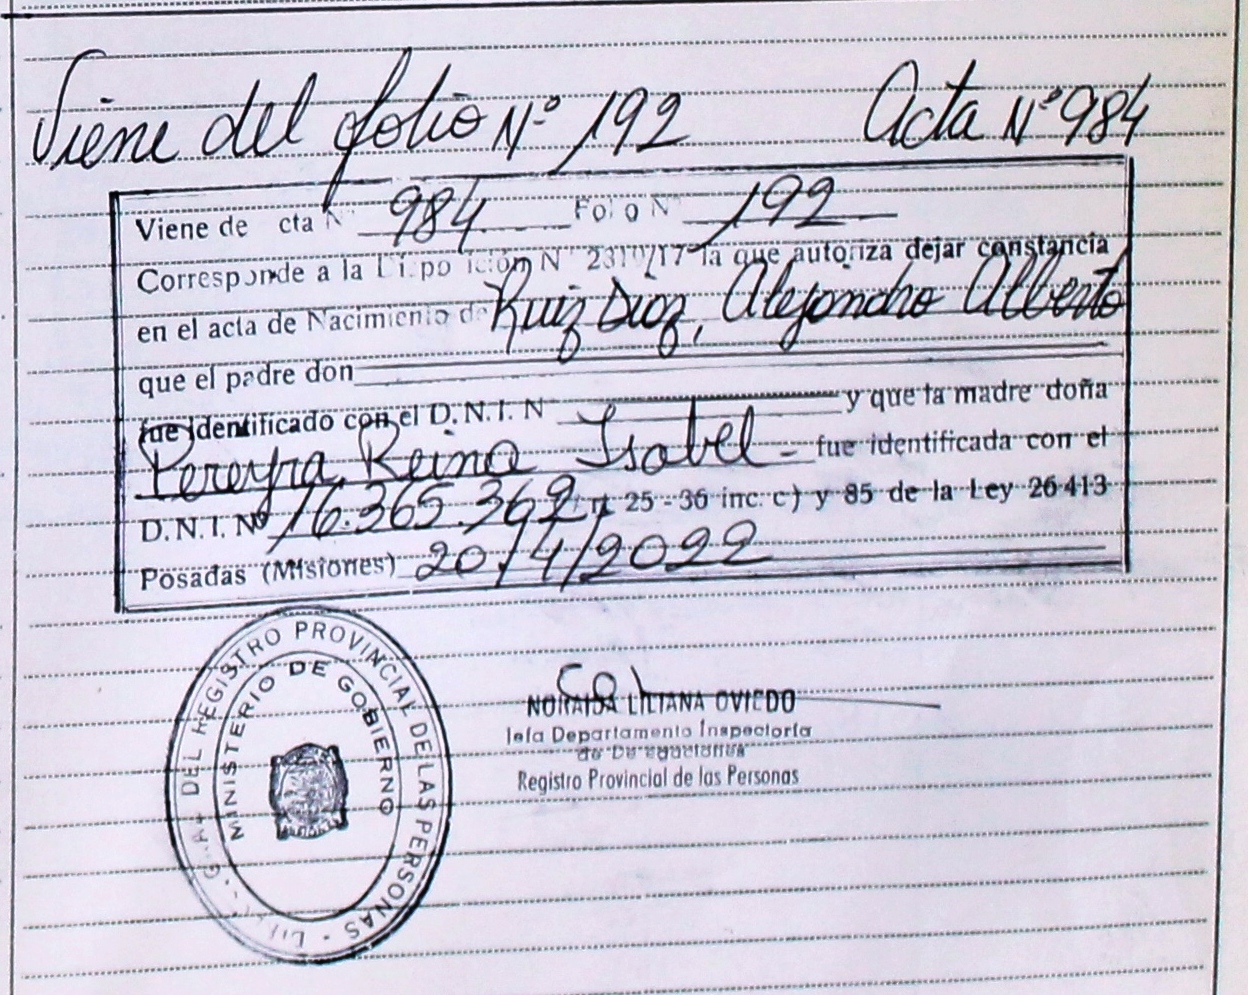 Viene del folio Nº 192 Acta Nº 984
Viene de cta N° 984 Folio N° 192
Corresponde a la Disposición N° 2310/17 la que autoriza dejar constancia
en el acta de Nacimiento de Ruiz Diaz, Alejandro Alberto
que el padre don
fue identificado con el D.N.I. N y que la madre doña
Pereyra Reina Isabel - fue identificada con el
D.N.I. Nº 16.365.369 Art 25 - 36 inc. c) y 85 de la Ley 26413
Posadas (Misiones) 20/4/2022
NORAIDA LILIANA OVIEDO
Jefa Departamento Inspectoría
de Delegaciones
Registro Provincial de las Personas
DEL REGISTRO PROVINCIAL DE LAS PERSONAS
MINISTERIO DE GOBIERNO